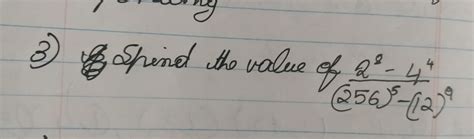 3) Find the value of 2⁸ - 4⁴ / (256)⁵ - (12)⁹